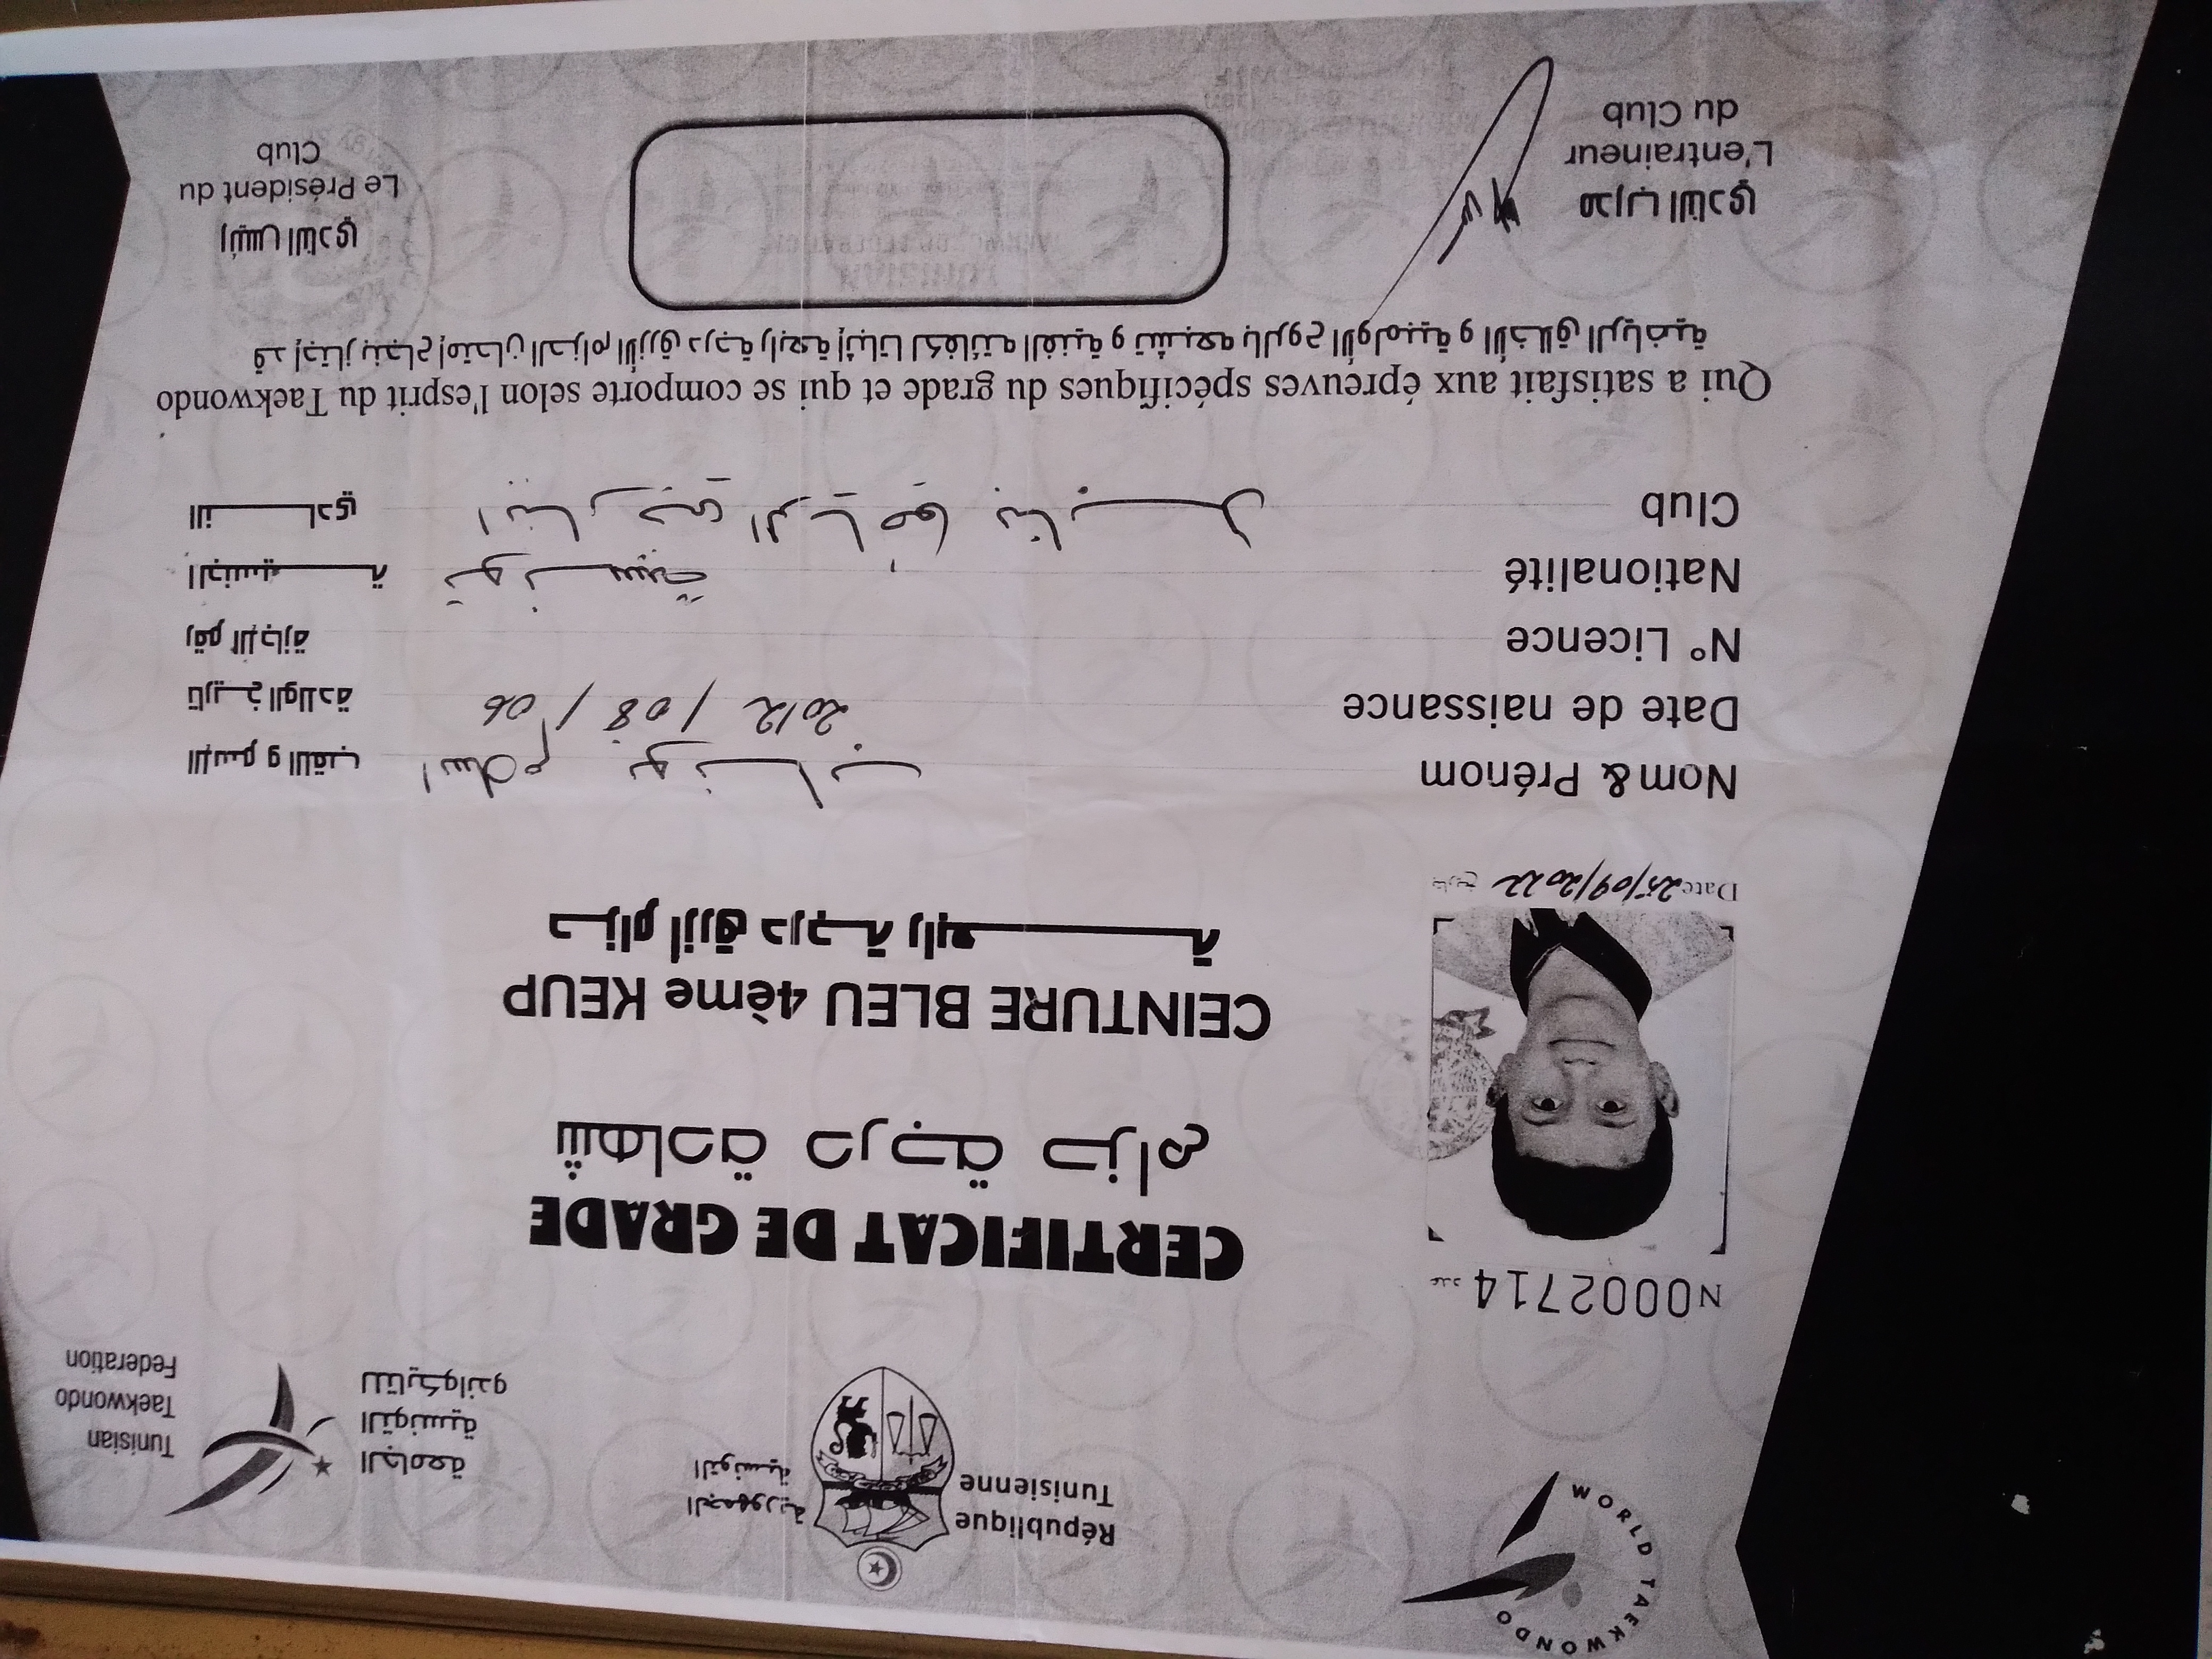 WORLD TAEKWONDO
République
Tunisienne
الجمهورية
التونسية
الجامعة
التونسية
للتايكواندو
Tunisian
Taekwondo
Federation
N0002714 عدد
CERTIFICAT DE GRADE
شهادة درجة حزام
CEINTURE BLEU 4ème KEUP
حزام أزرق درجة رابعة
Date 25/09/2022 تاريخ
Nom& Prénom اسلام الإسم و اللقب
Date de naissance 2012 / 08 / 06 تاريخ الولادة
N° Licence رقم الإجازة
Nationalité تونسية الجنسية
Club النادي
Qui a satisfait aux épreuves spécifiques du grade et qui se comporte selon l'esprit du Taekwondo
قد إجتاز بنجاح إمتحان الحزام الأزرق درجة رابعة إثباتا لكفائته الفنية و تشبعه بالروح الأولمبية و الأخلاق الرياضية
مدرب النادي
L'entraineur
du Club
رئيس النادي
Le Président du
Club